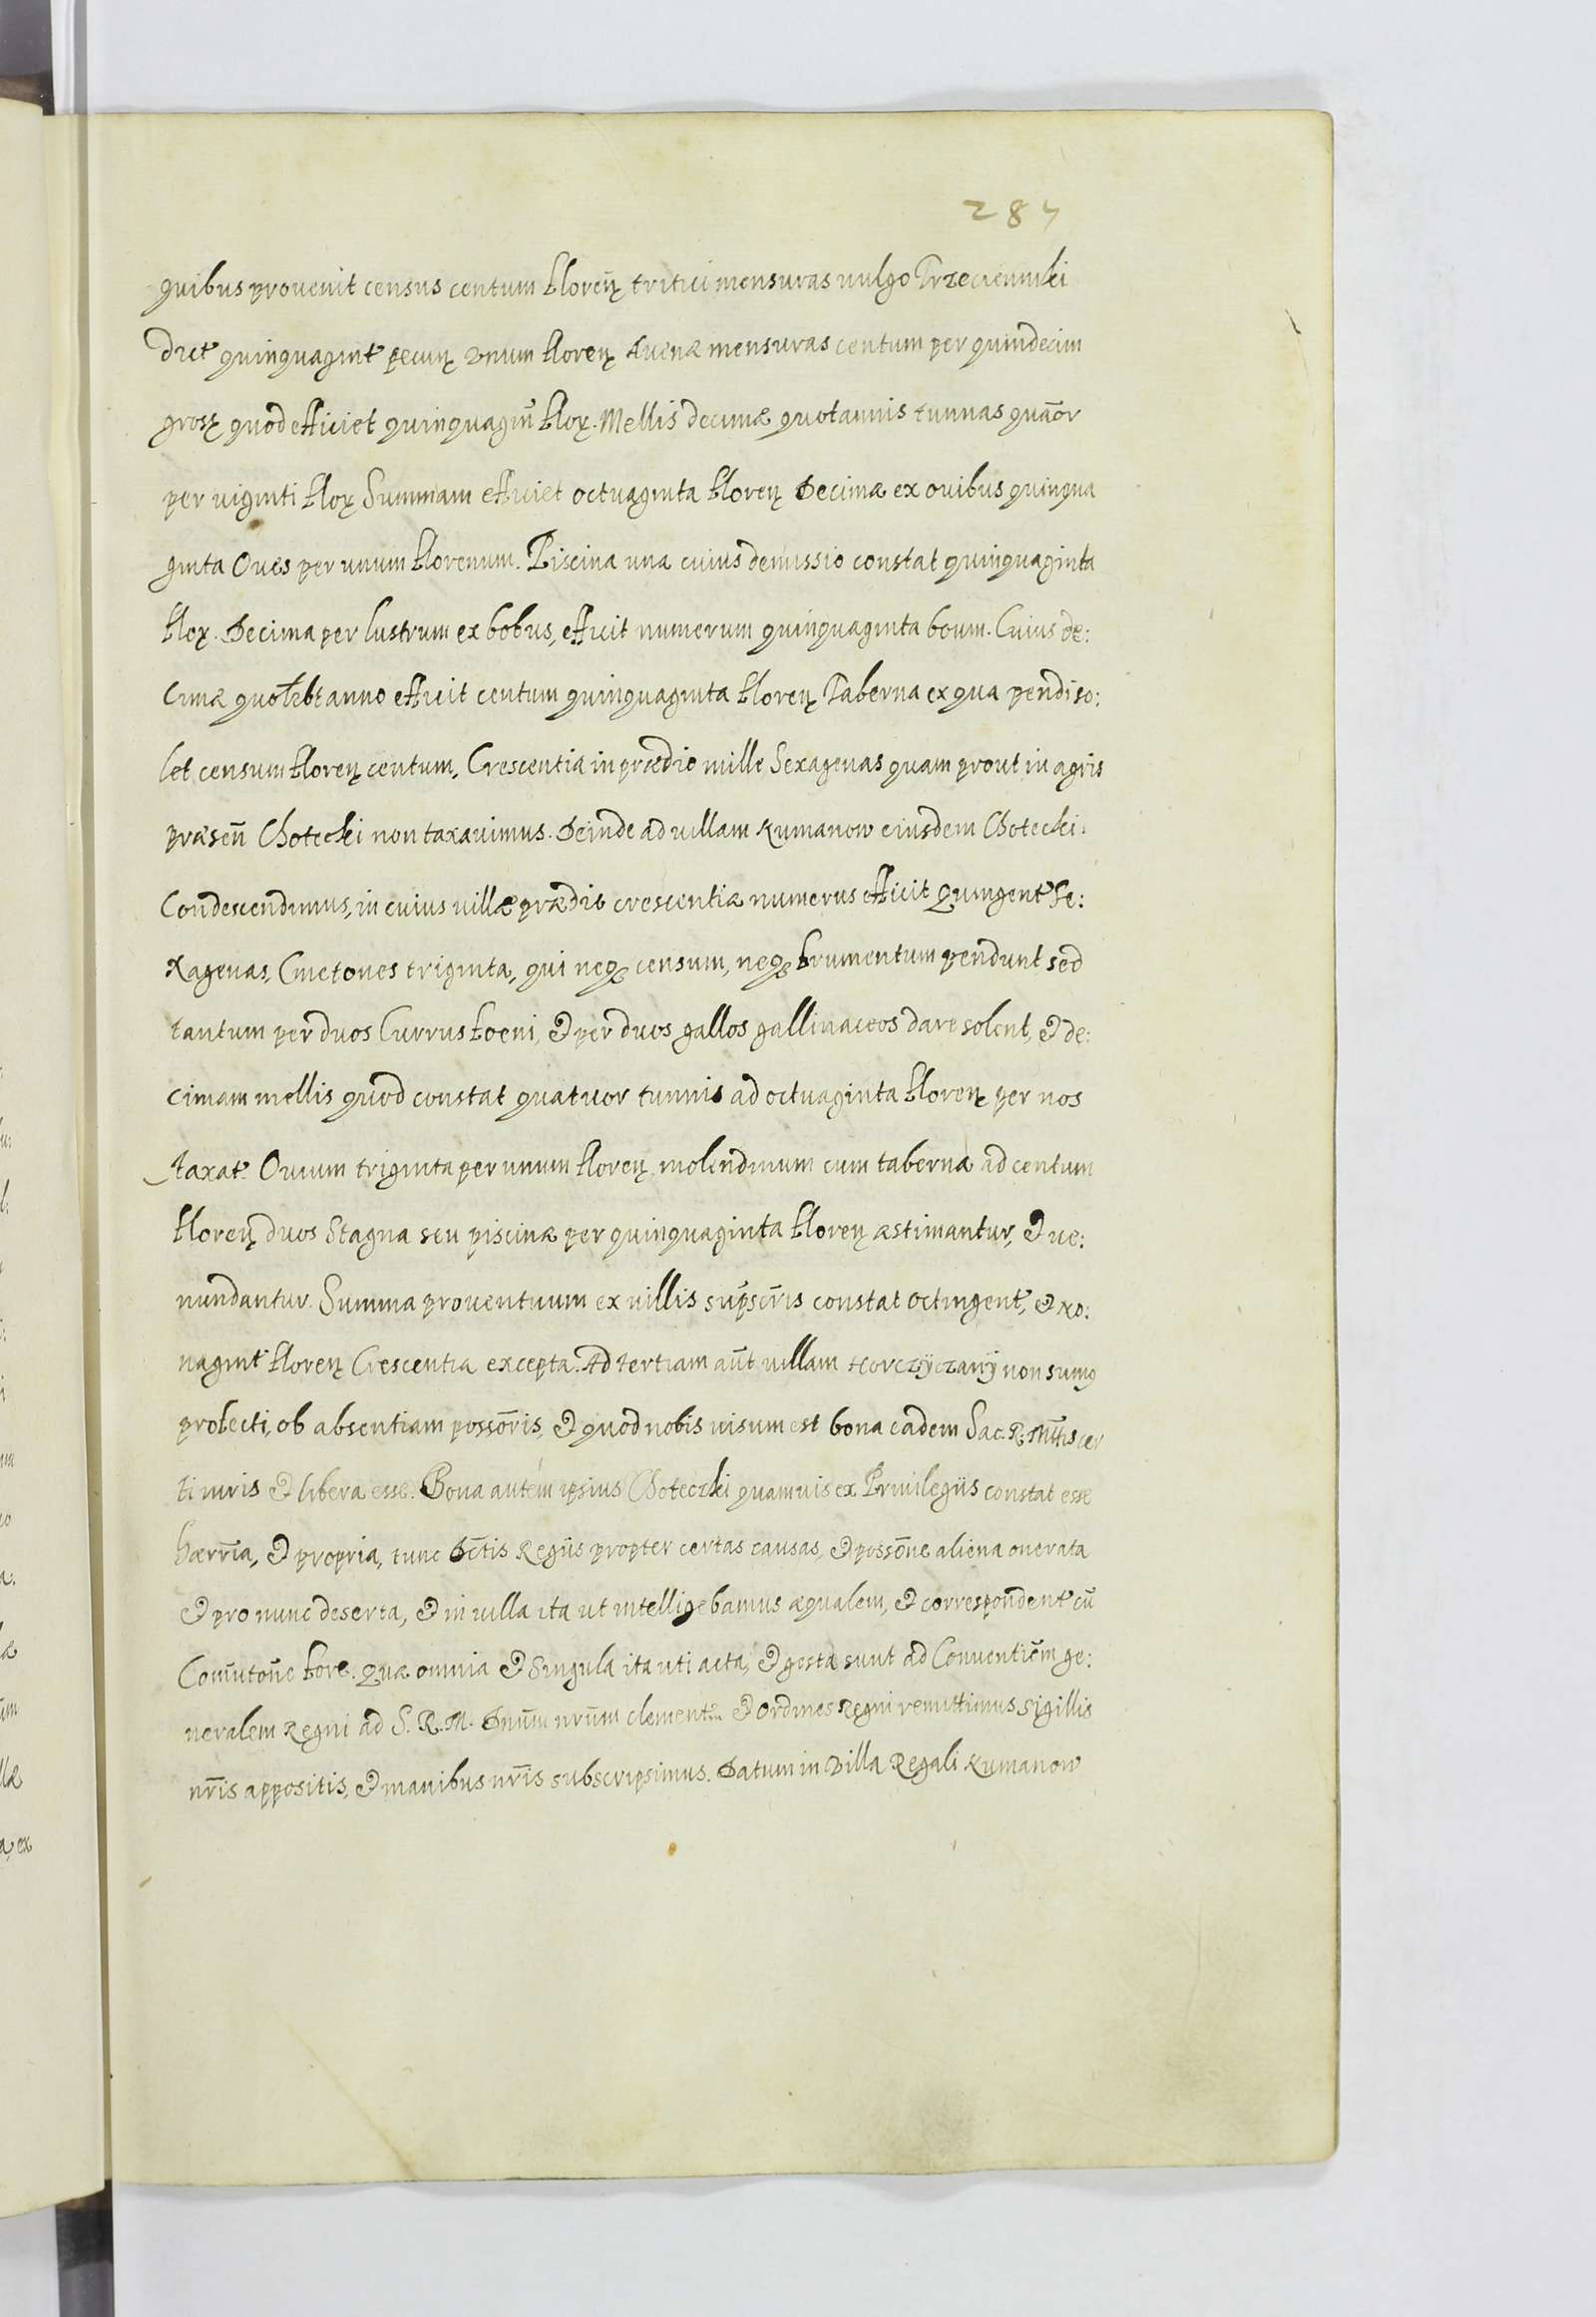 287
quibus prouenit census centum floreꝝ tritici mensuras uulgo Trzecienniki
dict̃ quinquagint̃ pecuꝝ vnum floreꝝ Auenæ mensuras centum per quindecim
grosꝝ quod efficiet quinquagin̄ floꝝ. Mellis decimæ quotannis tunnas quāor
per uiginti floꝝ Summam efficiet octuaginta floreꝝ Decimæ ex ouibus quinqua
ginta Oues per unum florenum. Piscina una cuius demissio constat quinquaginta
floꝝ. Decima per lustrum ex bobus, efficit numerum quinquaginta boum. Cuius de:
cimæ quolebt anno efficit centum quinquaginta floreꝝ Taberna ex qua pendi so:
let censum floreꝝ centum, Crescentia in prædio mille Sexagenas quam prout in agris
præsen̄ Chotecki non taxauimus. Deinde ad uillam Kumanow eiusdem Chotecki
Condescendimus, in cuius uillæ prædio crescentiæ numerus efficit Quingent̃ Se:
xagenas, Cmetones triginta, qui neqꝫ censum, neqꝫ frumentum pendunt sed
tantum per duos Currus foeni, & per duos gallos gallinaceos dare solent, & de:
cimam mellis quod constat quatuor tunnis ad octuaginta floreꝝ per nos
taxat̃ Ouium triginta per unum floreꝝ molendinum cum taberna ad centum
floreꝝ duos Stagna seu piscinæ per quinquaginta floreꝝ æstimantur, & ue:
nundantur. Summa prouentuum ex uillis sup̄scr̄is constat octingent̃, & no:
nagint̃ floreꝝ Crescentia excepta. Ad tertiam aūt uillam Horczÿczanÿ non sumꝰ
profecti, ob absentiam possōris, & quod nobis uisum est bona eadem Sac. R. Mt̄tis cer
ti iuris & libera esse. Bona autem ipsius Choteczki quamuis ex Priuilegiis constat esse
hærr̄ia, & propria, tunc dēctis Regiis propter certas causas, & possōne aliena onerata
& pro nunc deserta, & in uilla ita ut intelligebamus æqualem, & correspondent̃ cū
Com̄utōne fore. Quæ omnia & Singula ita uti acta, & gesta sunt ad Conuentiēm ge:
neralem Regni ad S. R. M. Dnūm nrūm clement̃m & Ordines Regni remittimus sigillis
nr̄is appositis, & manibus nr̄is subscripsimus. Datum in Villa Regali Kumanow